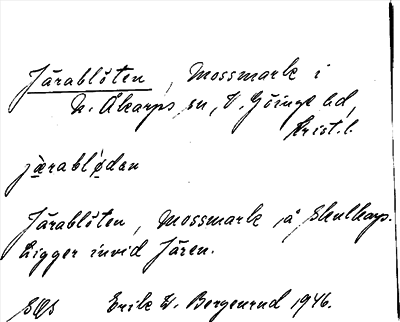 Järablöten, Mossmark i
N. Åkarps sn, V. Göinge hd,
Krist. l.
jærabløden
Järablöten, Mossmark å Skulkarp.
Ligger invid Jären.
Erik W. Bergenrud 1946.